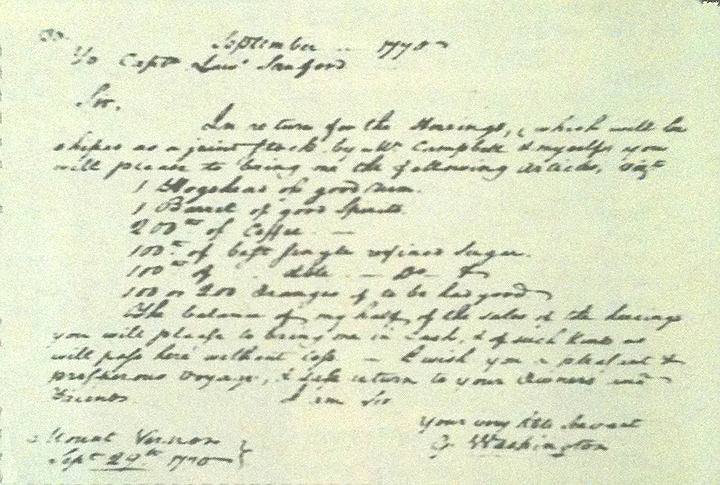 September .. 1770
To Capt Law Sanford
Sir,
In return for the Herrings, (which will be
shiped as a joint stock by Mr Campbell & myself) you
will please to bring me the following articles, viz
1 Hogshead of good Rum.
1 Barrel of good Spirits.
200 wt of Coffee. —
100 wt of best single refined Sugar.
100 wt of . dble. — Do —
100 or 200 Oranges if to be had good
The balance of my half of the sales of the herrings
you will please to bring me in Cash, & of such kind as
will pass here without loss — I wish you a pleasant &
prosperous voyage, & safe return to your Owners and
Friends I am Sir
Your very Hble Servant
G Washington
Mount Vernon
Sept 29th 1770